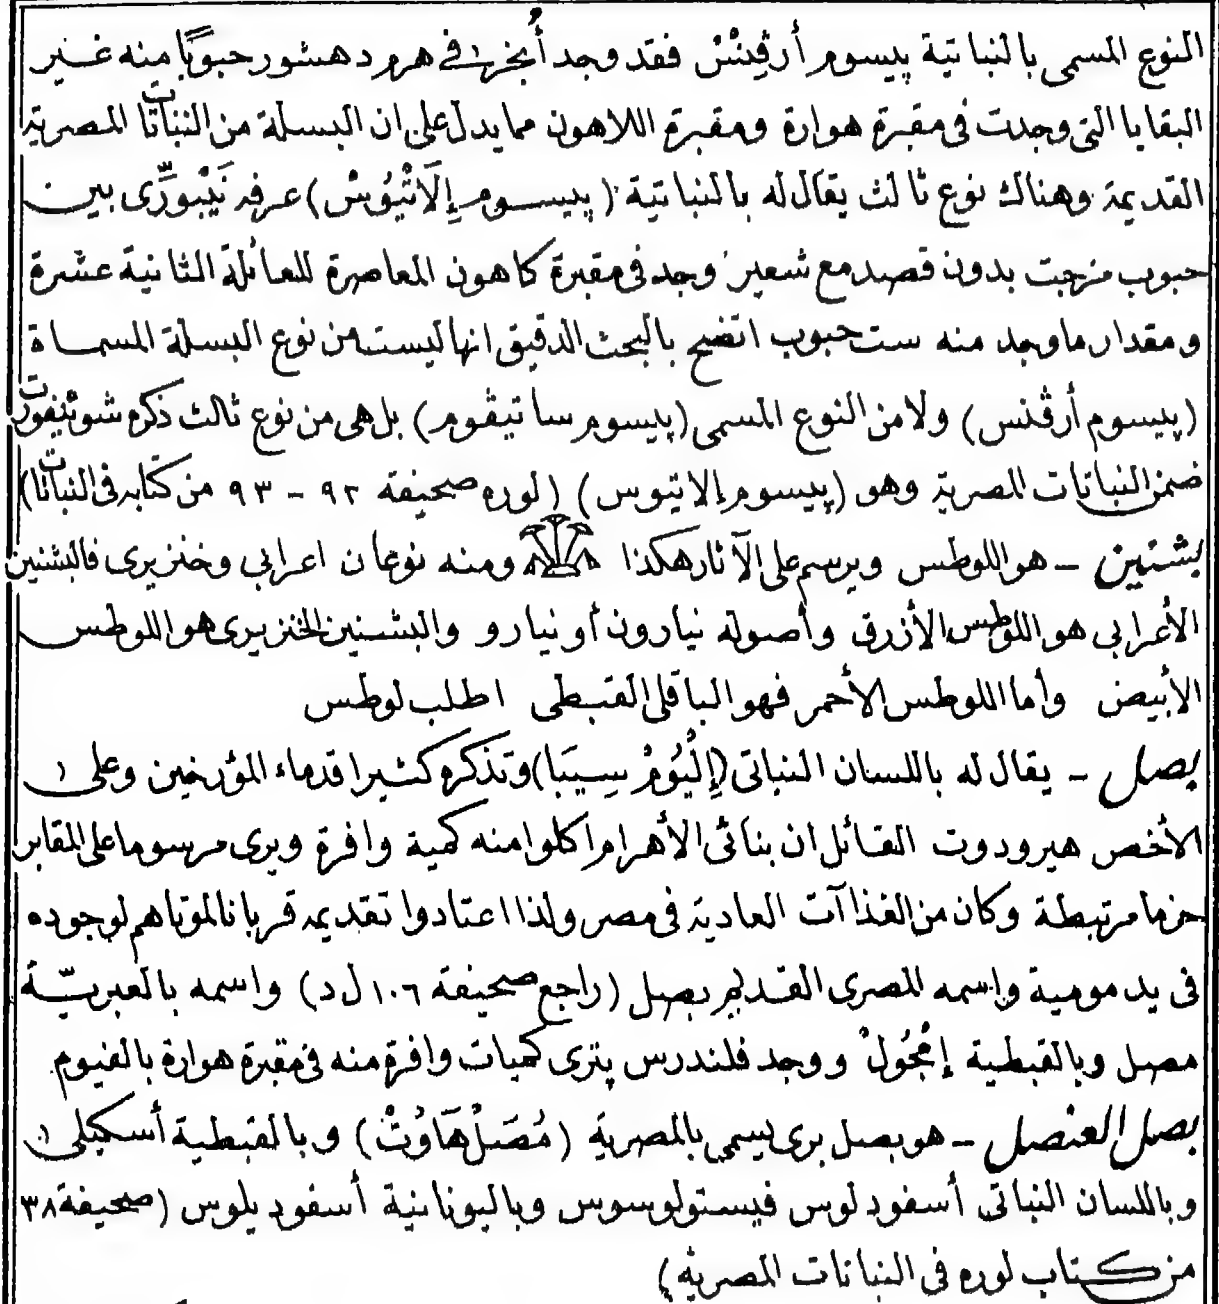 النوع المسمى بالنباتية پيسوم أرڤِنْسْ فقد وجد أُنجِر في هرم دهشور حبوبًا منه غير
البقايا التى وجدت فى مقبرة هوارة ومقبرة اللاهون مما يدل على ان البسلة من النباتات المصرية
القديمة وهناك نوع ثالث يقال له بالنباتية (پيسوم إِلَاتْيُوسْ) عرفه نَيْبورِّى بين
حبوب مزجت بدون قصد مع شعير وجد فى مقبرة كاهون المعاصرة للعائلة الثانية عشرة
ومقدار ما وجد منه ست حبوب اتضح بالبحث الدقيق انها ليست من نوع البسلة المسماة
(پيسوم أرڤنس) ولا من النوع المسمى (پيسوم ساتيڤوم) بل هى من نوع ثالث ذكره شوينفورت
ضمن النباتات المصرية وهو (پيسوم إلاتيوس) (لوره صحيفة ٩٢ - ٩٣ من كتابه فى النباتات)
بشنين - هو اللوطس ويرسم على الآثار هكذا ومنه نوعان اعرابى وخنزيرى فالبشنين
الأعرابى هو اللوطس الأزرق وأصوله نيارون أو نيارو والبشنين الخنزيرى هو اللوطس
الأبيض وأما اللوطس الأحمر فهو الباقلى القبطى اطلب لوطس
بصل - يقال له باللسان النباتى (إِلْيُومْ سِيبَا) وتذكره كثيرا قدماء المؤرخين وعلى
الأخص هيرودوت القائل ان بنائى الأهرام اكلوا منه كمية وافرة ويرى مرسوما على المقابر
حزما مرتبطة وكان من الغذاآت العادية فى مصر ولذا اعتادوا تقديمه قربانا لموتاهم لوجوده
فى يد مومية واسمه المصرى القديم بصل (راجع صحيفة ١٠٦ ل د) واسمه بالعبرية
مصل وبالقبطية إمْجُولْ ووجد فلندرس پترى كميات وافرة منه فى مقبرة هوارة بالفيوم
بصل العنصل - هو بصل برى يسمى بالمصرية (مُصَلْ هَاوُتْ) وبالقبطية أسكيلى
وباللسان النباتى أسفودلوس فيستولوسوس وباليونانية أسفوديلوس (صحيفة ٣٨
من كتاب لوره فى النباتات المصرية)